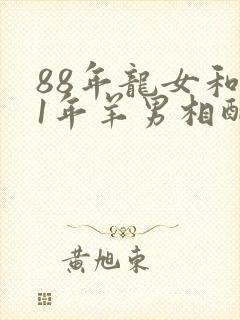 88年龍女和
1年羊男相配
黃旭東